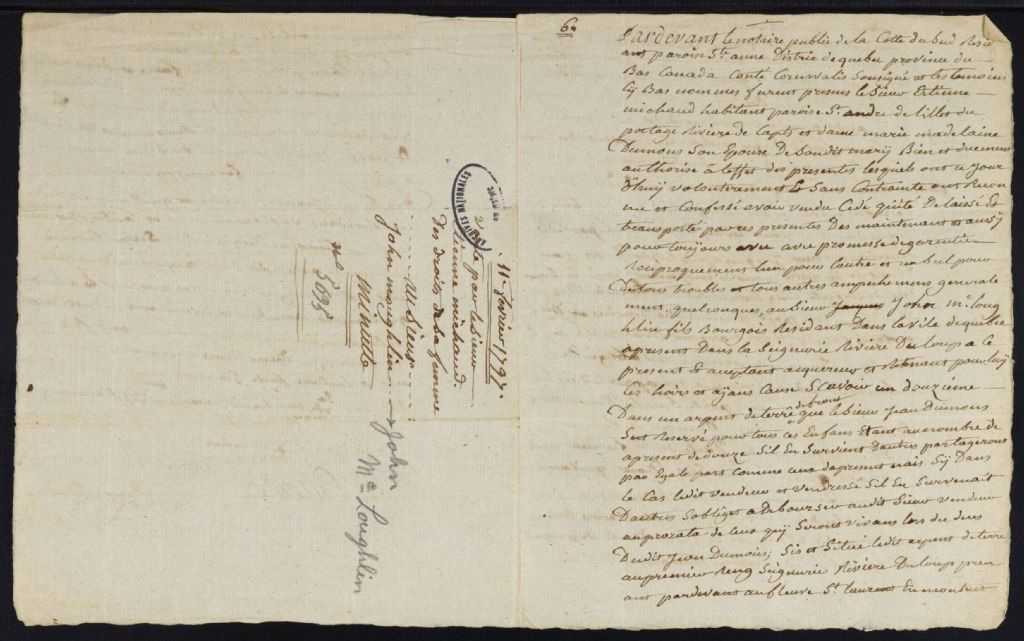 11e fevrier 1797.
Vente par le sieur
Etienne michaud
Des droits de sa femme
au Sieur
John maughlin
Minute
No 5095
John
Mc Loughlin
ARCHIVES NATIONALES
QUÉBEC
6e
Pardevant le notaire public de la Cotte du Sud Resid
ant paroise Ste anne District de quebec province du
Bas Canada Conté Cornwalis Sousigné et les temoins
Cy Bas nommes furent presens le Sieur Etienne
michaud habitant paroise St andre de lillet du
portage Riviere de Capts et dame marie madelaine
Dumons Son Epouse De Soudit mary Bien et duement
authorise à leffet des presentes lesquels ont ce Jour
d'huy volonterement Et Sans Contrainte ont Recon
nue et Confessé avoir vendu Cedé quité Delaissé Et
transporté par ces presentes Des maintenant et aussy
pour toujours avec promesse de garentie
Reciproquement lun pour lautre et un sul pour
De tous troubles et tous autres ampechemens generale
ment quelconques, au Sieur Jacques John Mc loug
hlin fils Bourgois Residant Dans la vile de quebec
apresent Dans la Seignorie Riviere Du loup a ce
present Et aceptant acquereur et Retenant pour luy
Ces hoirs et ayans Cause Scavoir un douzieme
Dans un arpent de terre de front que le Sieur Jean Dumons
Sest Reservé pour tous ces Enfans Etant au nombre de
apresent de Douze Sil En Survient Dautres partageront
par Egale part Comme ceux dapresent mais Sy Dans
le Cas ledit vendeur et vendresse Sil En Survenait
Dautres Sobliges a Debourser audit Sieur vendeur
au prorata de leux quy Seront vivans lors du deces
Dudit Jean Dumons; Sis et Situé ledit arpent de terre
au premier Reng Seignurie Riviere Du loup pren
ant pardevant au fleuve St laurent En montant